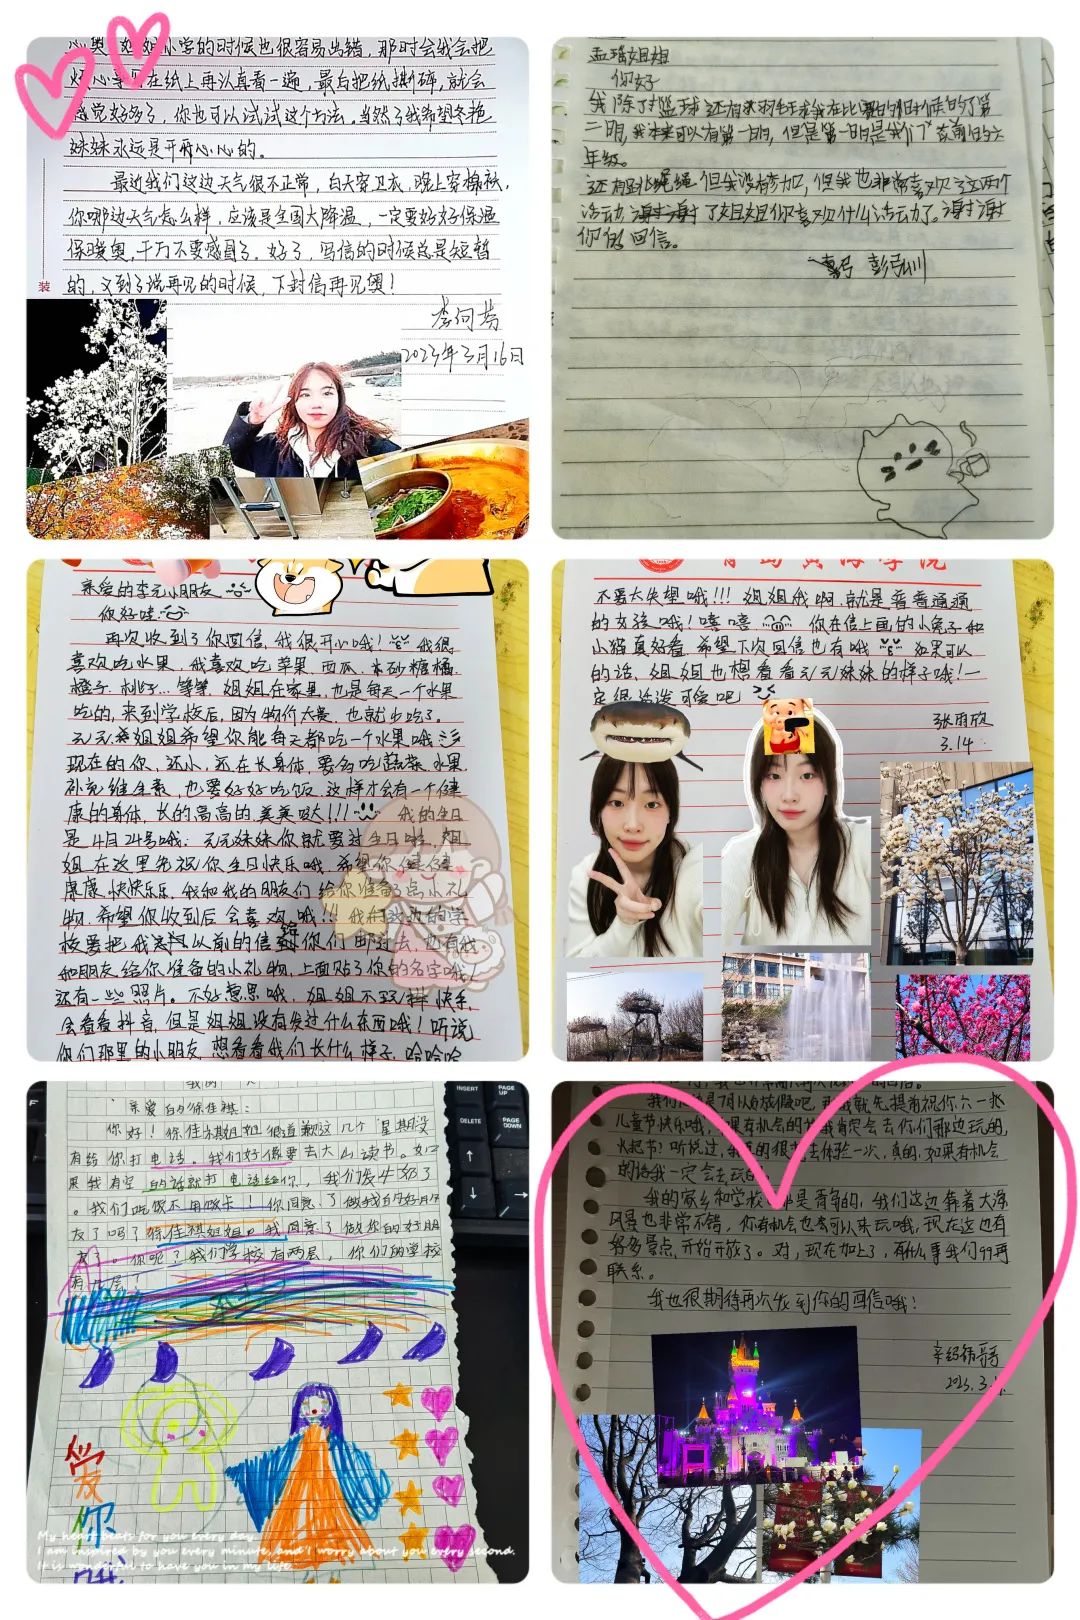 心奥，姐姐小学的时候也很容易出错，那时会我会把
坏心事写在纸上再认真看一遍，最后把纸撕碎，就会
感觉好多了，你也可以试试这个方法。当然了我希望冬艳
妹妹永远是开开心心的。
最近我们这边天气很不正常，白天穿卫衣，晚上穿棉袄，
你哪边天气怎么样，应该是全国大降温，一定要好好保温
保暖奥，千万不要感冒了。好了，写信的时候总是短暂
的，又到了说再见的时候，下封信再见奥！
装
李向苒
2023年3月16日
孟瑶姐姐
你好
我除了打篮球还有羽毛球我在比赛的时候的了第
二明，我本来可以有第一明，但是第一明是我们下
年级。
还有跳绳 但我没有参加，但我也非常喜欢了这两个
活动 谢谢了姐姐你喜欢什么活动了。谢谢
你的回信。
彭弓川
亲爱的李元小朋友
你好哇
再次收到了你回信，我很开心哦！我很
喜欢吃水果，我喜欢吃苹果、西瓜、砂糖橘
橙子、桃子…等等，姐姐在家里，也是每天一个水果
吃的，来到学校后，因为物价太贵，也就少吃了。
元元，姐姐希望你能每天都吃一个水果哦
现在的你，还小，还在长身体，要多吃蔬菜、水果
补充维生素，也要好好吃饭，这样才会有一个健
康的身体，长的高高的，美美哒！！！我的生日
是4月24号哦；元元妹妹你就要过生日啦，姐
姐在这里先祝你生日快乐哦，希望你健健
康康，快快乐乐，我和我的朋友们给你准备了点小礼
物，希望你收到后会喜欢哦!!! 我们这边的学
校要把我们以前的信给你们邮过去，还有我
和朋友给你准备的小礼物，上面贴了你的名字哦！
还有一些照片。不好意思哦，姐姐不玩快手，
会看看抖音，但是姐姐没有发过什么东西哦！听说
你们那里的小朋友，想看看我们长什么样子，哈哈哈
青岛黄海学院
不要太失望哦!!! 姐姐我啊，就是普普通通
的女孩哦！嘻嘻 你在信上画的小兔子和
小猫真好看，希望下次回信也有哦 如果可以
的话，姐姐也想看看元元妹妹的样子哦！一
定很活泼可爱吧
张雨欣
3.14
亲爱的徐佳祺：
你好！徐佳祺姐姐很道歉这几个星期没
有给你打电话。我们好像要去大山读书。如
果我有空的话就打电话给你，我们发牛奶了
。我们吃饭不用饭卡！你同意了做我的好朋
友了吗？徐佳祺姐姐。我同意了做您的好朋
友了。你呢？我们学校有两层，你们的学校
有几层！
爱
你
哦
My heart beats for you every day.
I am inspired by you every minute, and I worry about you every second.
It is wonderful to have you in my life.
INSERT
PAGE UP
DELETE
PAGE DOWN
我们是7月放假吧，那我就先提前祝你六一
儿童节快乐哦，如果有机会的话我肯定会去你们那边玩的，
火把节？听说过，我真的很想去体验一次，真的，如果有机会
的话我一定会去玩的
我的家乡和学校都是青岛的，我们这边靠着大海
风景也非常不错，你有机会也可以来玩哦，现在这也有
好多景点，开始开放了。对，现在加上了，有什么事我们QQ再
联系。
我也很期待再次收到你的回信哦！
辛经伟哥哥